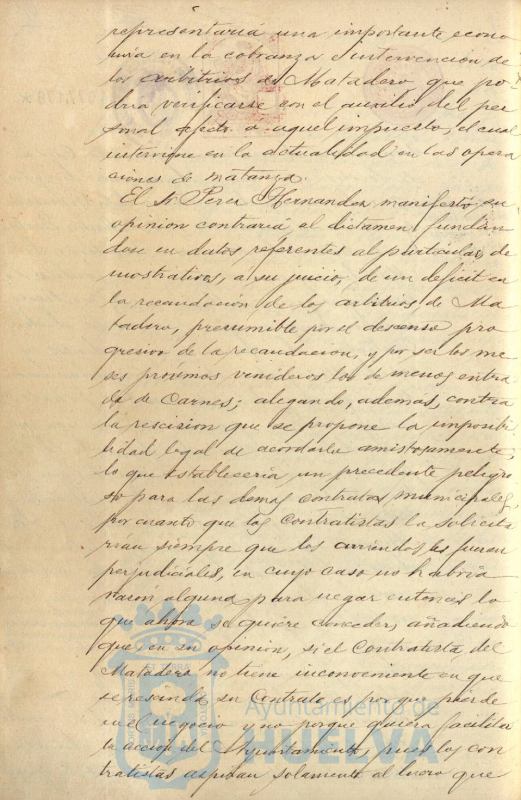 representaria una importante econo
mia en la cobranza e intervencion de
los arbitrios de Matadero que po
dria verificarse con el auxilio del per
sonal afecto a aquel impuesto, el cual
interviene en la actualidad en las opera
ciones de matanza.
El Sr. Perez Hernandez manifestó su
opinion contraria al dictamen fundan
dose en datos referentes al particular, de
mostrativos, a su juicio, de un deficit en
la recaudación de los arbitrios de Ma
tadero, presumible por el descenso pro
gresivo de la recaudacion, y por ser los me
ses proximos venideros los de menos entra
da de Carnes; alegando, ademas, contra
la rescision que se propone la imposibi
lidad legal de acordarla amistosamente,
lo que estableceria un precedente peligro
so para los demas contratos municipales,
por cuanto que los Contratistas la solicita
rian siempre que los arriendos les fueran
perjudiciales, en cuyo caso no habria
razon alguna para negar entonces lo
que ahora se quiere conceder, añadiendo
que en su opinion, si el Contratista del
Matadero no tiene inconveniente en que
se rescinda su Contrato es porque pierde
en el negocio y no porque quiera facilitar
la acción del Ayuntamiento, pues los con
tratistas aspiran solamente al lucro que
Ayuntamiento de
HUELVA